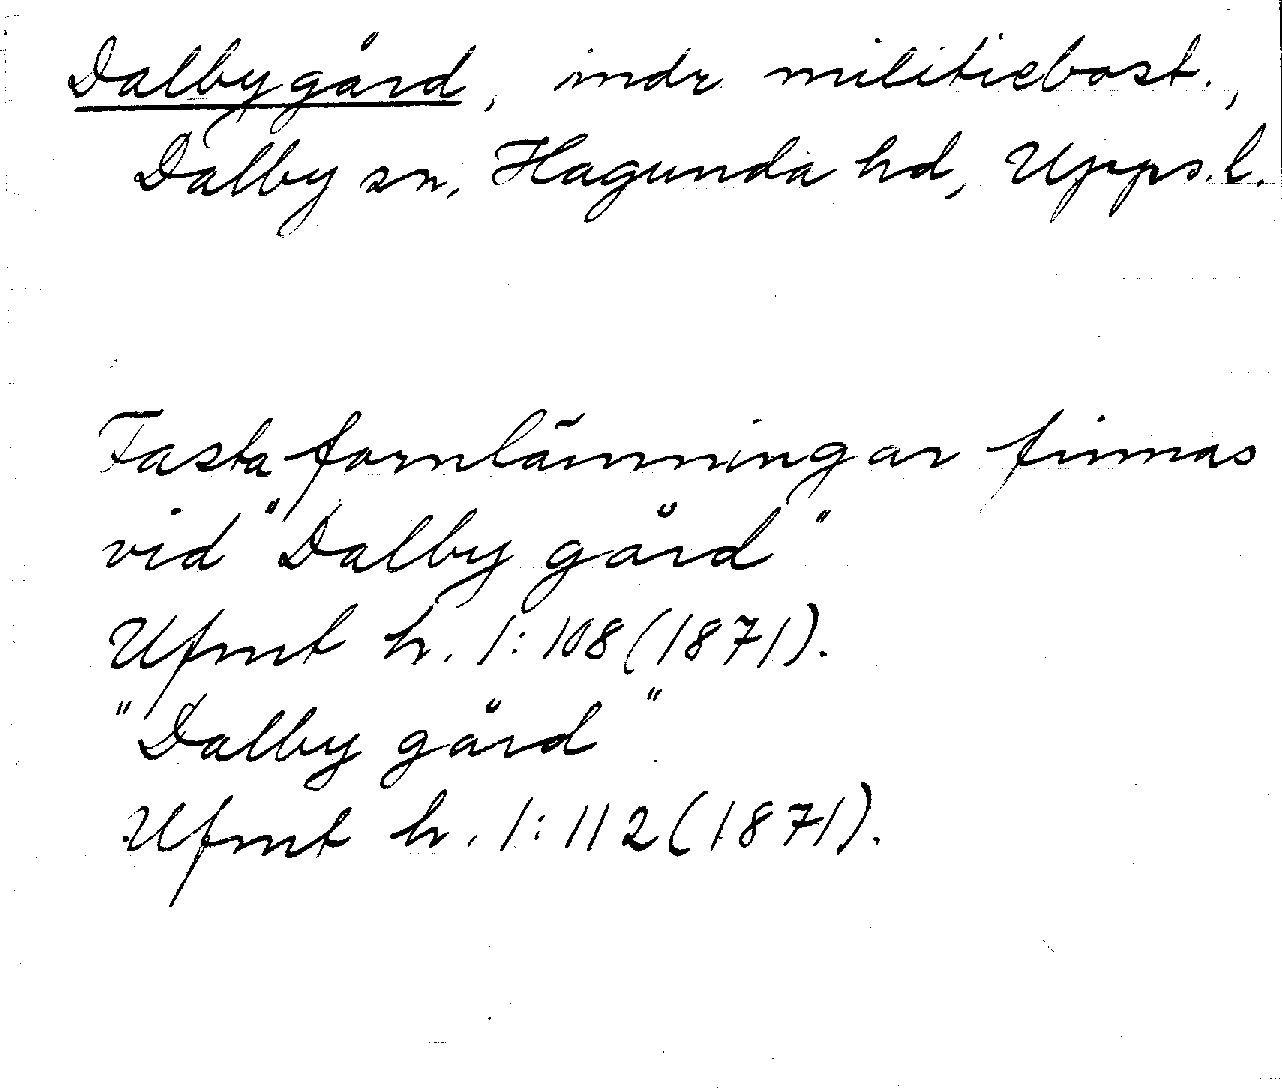 Dalbygård, indr militiebost.,
Dalby sn, Hagunda hd, Upps.l.
Fasta fornlämningar finnas
vid "Dalby gård"
Ufmt h. 1:108 (1871).
"Dalby gård"
Ufmt h. 1:112 (1871).